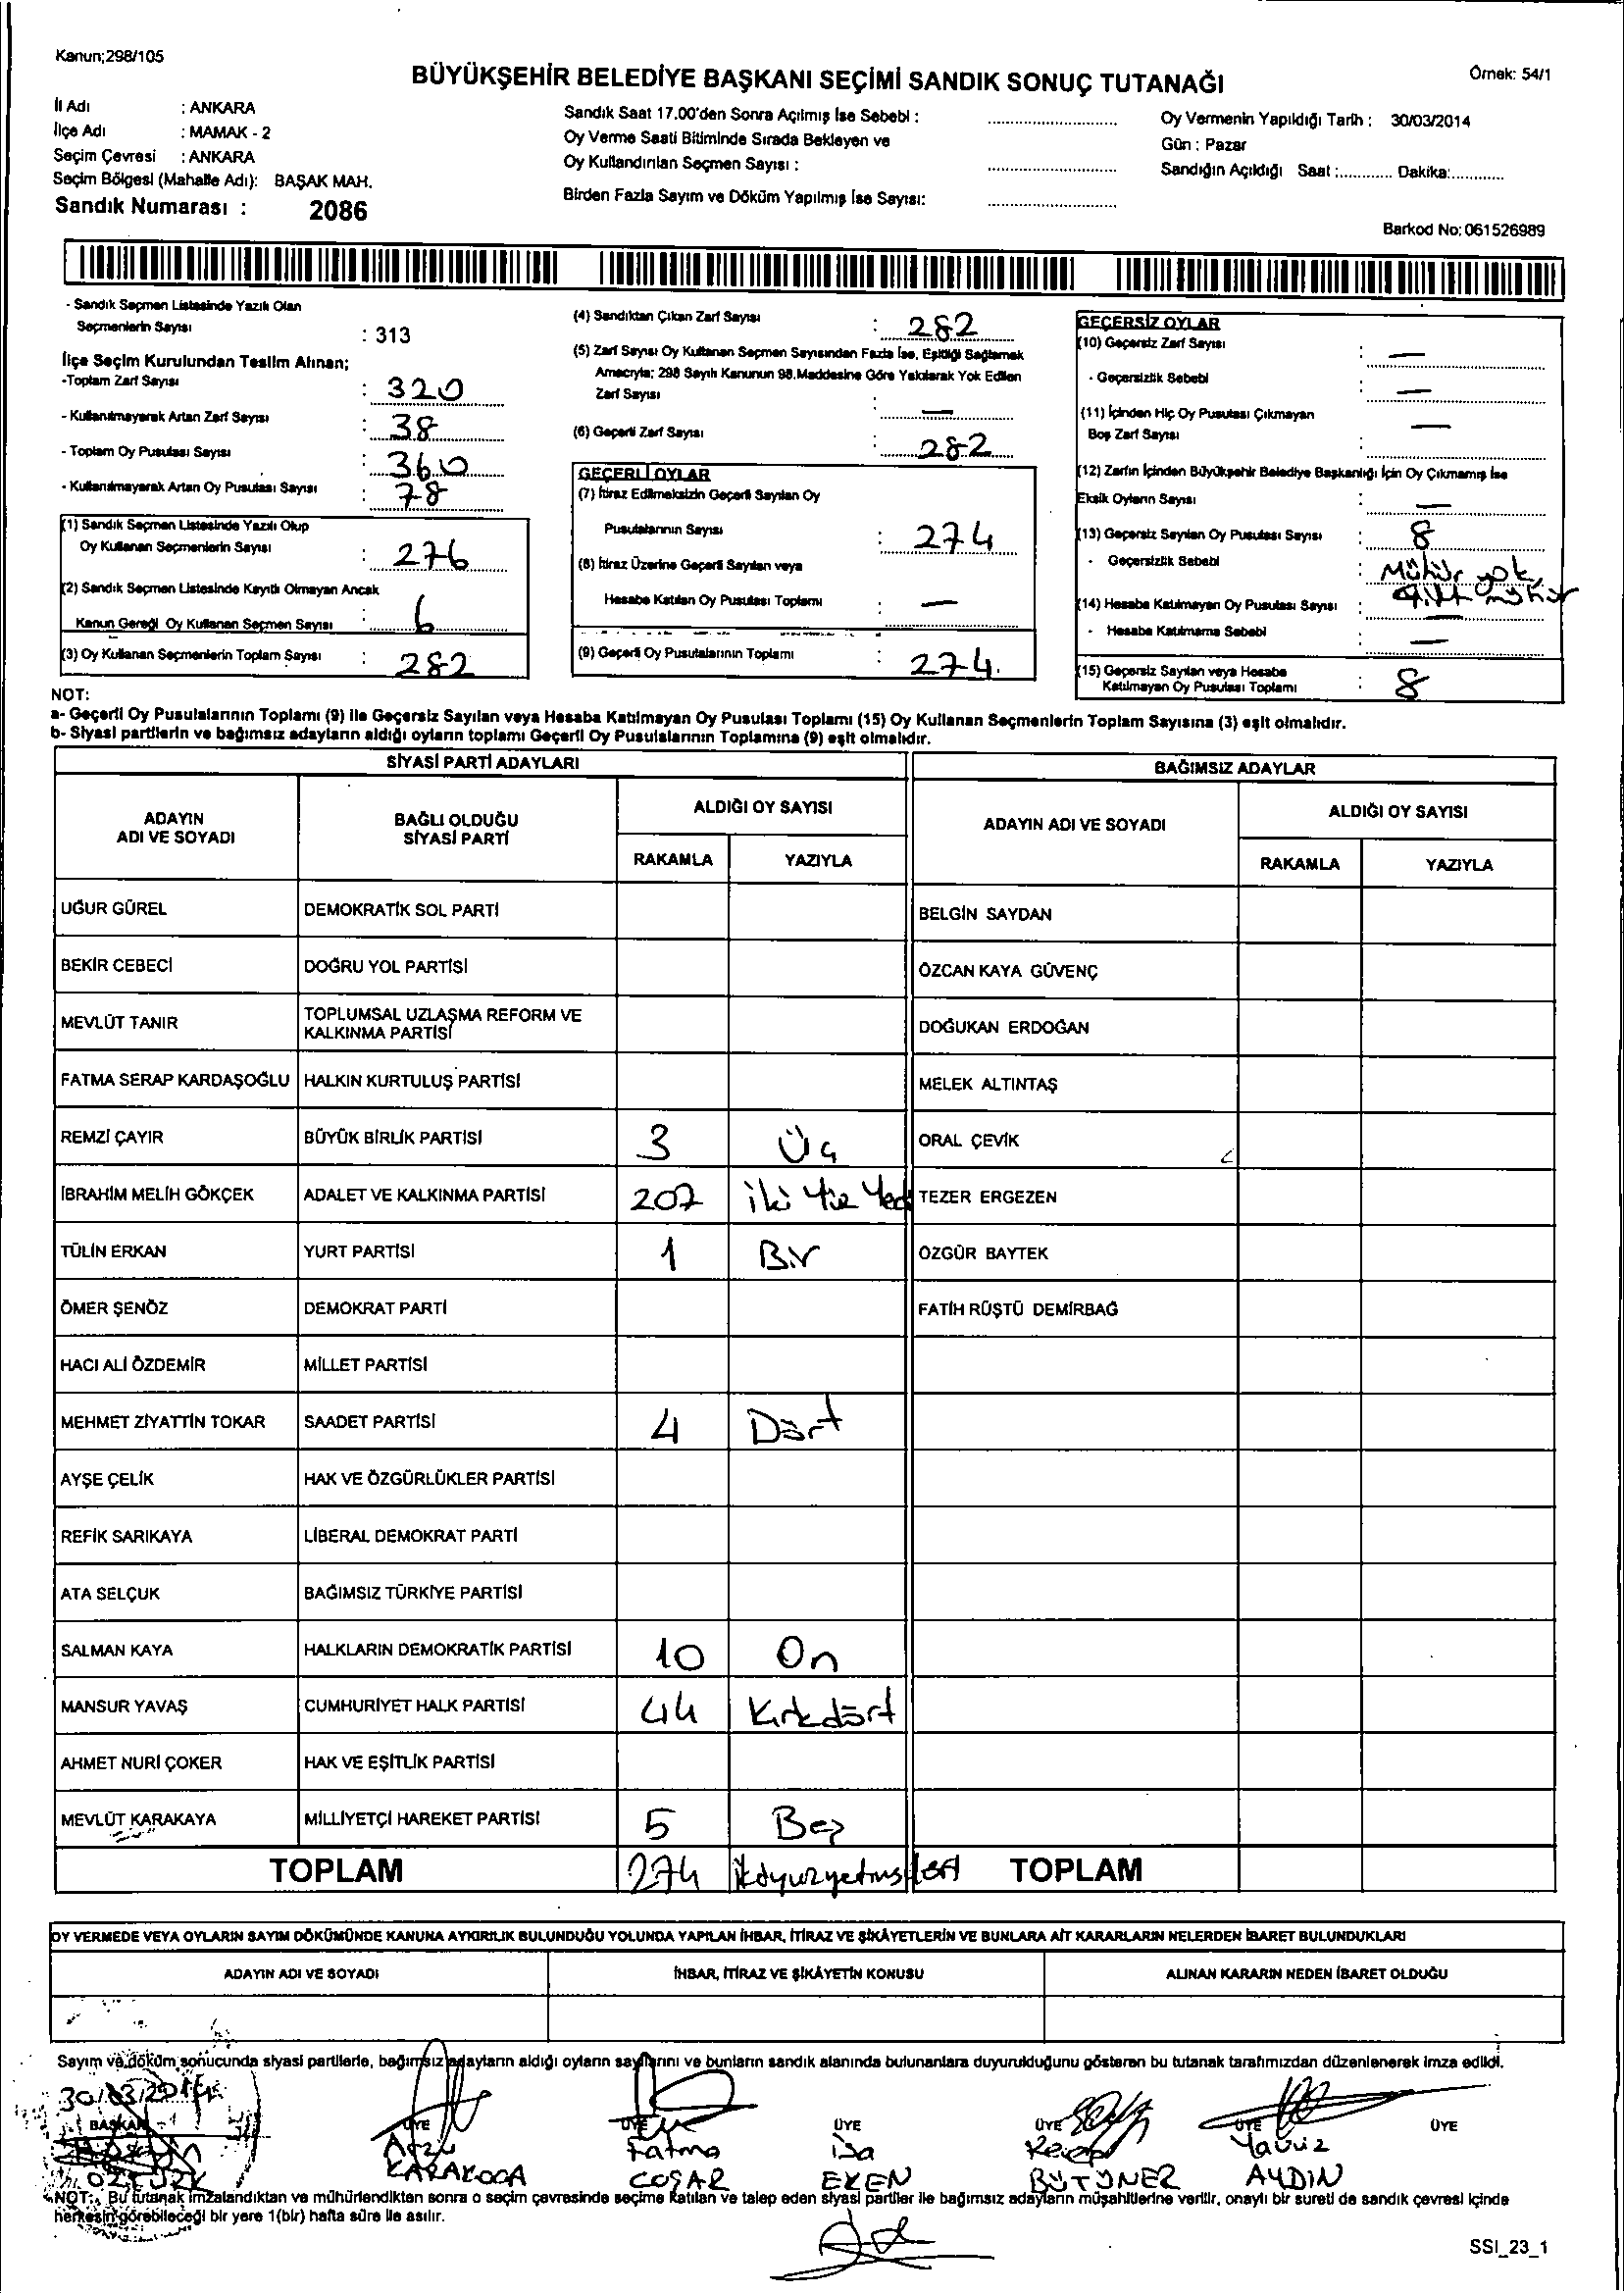 Kanun;298/105
BÜYÜKŞEHİR BELEDİYE BAŞKANI SEÇİMİ SANDIK SONUÇ TUTANAĞI
Örnek: 54/1
İl Adı : ANKARA
İlçe Adı : MAMAK - 2
Seçim Çevresi : ANKARA
Seçim Bölgesi (Mahalle Adı): BAŞAK MAH.
Sandık Numarası : 2086
Sandık Saat 17.00'den Sonra Açılmış İse Sebebi : ........................
Oy Verme Saati Bitiminde Sırada Bekleyen ve
Oy Kullandırılan Seçmen Sayısı : ........................
Birden Fazla Sayım ve Döküm Yapılmış İse Sayısı: ........................
Oy Vermenin Yapıldığı Tarih : 30/03/2014
Gün : Pazar
Sandığın Açıldığı Saat :............ Dakika:............
Barkod No: 061526989
- Sandık Seçmen Listesinde Yazılı Olan
Seçmenlerin Sayısı : 313
İlçe Seçim Kurulundan Teslim Alınan;
-Toplam Zarf Sayısı : 320
- Kullanılmayarak Artan Zarf Sayısı : 38
- Toplam Oy Pusulası Sayısı : 360
- Kullanılmayarak Artan Oy Pusulası Sayısı : 78
(1) Sandık Seçmen Listesinde Yazılı Olup
Oy Kullanan Seçmenlerin Sayısı : 276
(2) Sandık Seçmen Listesinde Kayıtlı Olmayan Ancak
Kanun Gereği Oy Kullanan Seçmen Sayısı : 6
(3) Oy Kullanan Seçmenlerin Toplam Sayısı : 282
(4) Sandıktan Çıkan Zarf Sayısı : 282
(5) Zarf Sayısı Oy Kullanan Seçmen Sayısından Fazla İse, Eşitliği Sağlamak
Amacıyla; 298 Sayılı Kanunun 98.Maddesine Göre Yakılarak Yok Edilen
Zarf Sayısı : —
(6) Geçerli Zarf Sayısı : 282
GEÇERLİ OYLAR
(7) İtiraz Edilmeksizin Geçerli Sayılan Oy
Pusulalarının Sayısı : 274
(8) İtiraz Üzerine Geçerli Sayılan veya
Hesaba Katılan Oy Pusulası Toplamı : —
(9) Geçerli Oy Pusulalarının Toplamı : 274.
GEÇERSİZ OYLAR
(10) Geçersiz Zarf Sayısı : —
- Geçersizlik Sebebi : —
(11) İçinden Hiç Oy Pusulası Çıkmayan
Boş Zarf Sayısı : —
(12) Zarfın İçinden Büyükşehir Belediye Başkanlığı İçin Oy Çıkmamış İse
Eksik Oyların Sayısı : —
(13) Geçersiz Sayılan Oy Pusulası Sayısı : 8
- Geçersizlik Sebebi : Mühür yok,
mühür
(14) Hesaba Katılmayan Oy Pusulası Sayısı : —
- Hesaba Katılmama Sebebi : —
(15) Geçersiz Sayılan veya Hesaba
Katılmayan Oy Pusulası Toplamı : 8
NOT:
a- Geçerli Oy Pusulalarının Toplamı (9) ile Geçersiz Sayılan veya Hesaba Katılmayan Oy Pusulası Toplamı (15) Oy Kullanan Seçmenlerin Toplam Sayısına (3) eşit olmalıdır.
b- Siyasi partilerin ve bağımsız adayların aldığı oyların toplamı Geçerli Oy Pusulalarının Toplamına (9) eşit olmalıdır.
SİYASİ PARTİ ADAYLARI
BAĞIMSIZ ADAYLAR
ADAYIN ADI VE SOYADI
BAĞLI OLDUĞU SİYASİ PARTİ
ALDIĞI OY SAYISI
RAKAMLA YAZIYLA
ADAYIN ADI VE SOYADI
ALDIĞI OY SAYISI
RAKAMLA YAZIYLA
UĞUR GÜREL DEMOKRATİK SOL PARTİ BELGİN SAYDAN
BEKİR CEBECİ DOĞRU YOL PARTİSİ ÖZCAN KAYA GÜVENÇ
MEVLÜT TANIR TOPLUMSAL UZLAŞMA REFORM VE KALKINMA PARTİSİ DOĞUKAN ERDOĞAN
FATMA SERAP KARDAŞOĞLU HALKIN KURTULUŞ PARTİSİ MELEK ALTINTAŞ
REMZİ ÇAYIR BÜYÜK BİRLİK PARTİSİ 3 Üç ORAL ÇEVİK
İBRAHİM MELİH GÖKÇEK ADALET VE KALKINMA PARTİSİ 207 iki Yüz Yedi TEZER ERGEZEN
TÜLİN ERKAN YURT PARTİSİ 1 Bir ÖZGÜR BAYTEK
ÖMER ŞENÖZ DEMOKRAT PARTİ FATİH RÜŞTÜ DEMİRBAĞ
HACI ALİ ÖZDEMİR MİLLET PARTİSİ
MEHMET ZİYATTİN TOKAR SAADET PARTİSİ 4 Dört
AYŞE ÇELİK HAK VE ÖZGÜRLÜKLER PARTİSİ
REFİK SARIKAYA LİBERAL DEMOKRAT PARTİ
ATA SELÇUK BAĞIMSIZ TÜRKİYE PARTİSİ
SALMAN KAYA HALKLARIN DEMOKRATİK PARTİSİ 10 On
MANSUR YAVAŞ CUMHURİYET HALK PARTİSİ 44 Kırkdört
AHMET NURİ ÇOKER HAK VE EŞİTLİK PARTİSİ
MEVLÜT KARAKAYA MİLLİYETÇİ HAREKET PARTİSİ 5 Beş
TOPLAM 274 TOPLAM
OY VERMEDE VEYA OYLARIN SAYIM DÖKÜMÜNDE KANUNA AYKIRILIK BULUNDUĞU YOLUNDA YAPILAN İHBAR, İTİRAZ VE ŞİKÂYETLERİN VE BUNLARA AİT KARARLARIN NELERDEN İBARET BULUNDUKLARI
ADAYIN ADI VE SOYADI İHBAR, İTİRAZ VE ŞİKÂYETİN KONUSU ALINAN KARARIN NEDEN İBARET OLDUĞU
Sayım ve döküm sonucunda siyasi partilerle, bağımsız adayların aldığı oyların sayılarını ve bunların sandık alanında bulunanlara duyurulduğunu gösteren bu tutanak tarafımızdan düzenlenerek imza edildi.
30/03/2014
BAŞKAN ÜYE ÜYE ÜYE ÜYE ÜYE ÜYE
Arzu Fatma İsa Recep Yavuz
ÖZTÜRK KARAKOCA COŞAR EKEN BÜTÜNER AYDIN
NOT: Bu tutanak imzalandıktan ve mühürlendikten sonra o seçim çevresinde seçime katılan ve talep eden siyasi partiler ile bağımsız adayların müşahitlerine verilir, onaylı bir sureti de sandık çevresi içinde
herkesin görebileceği bir yere 1(bir) hafta süre ile asılır.
SSI_23_1